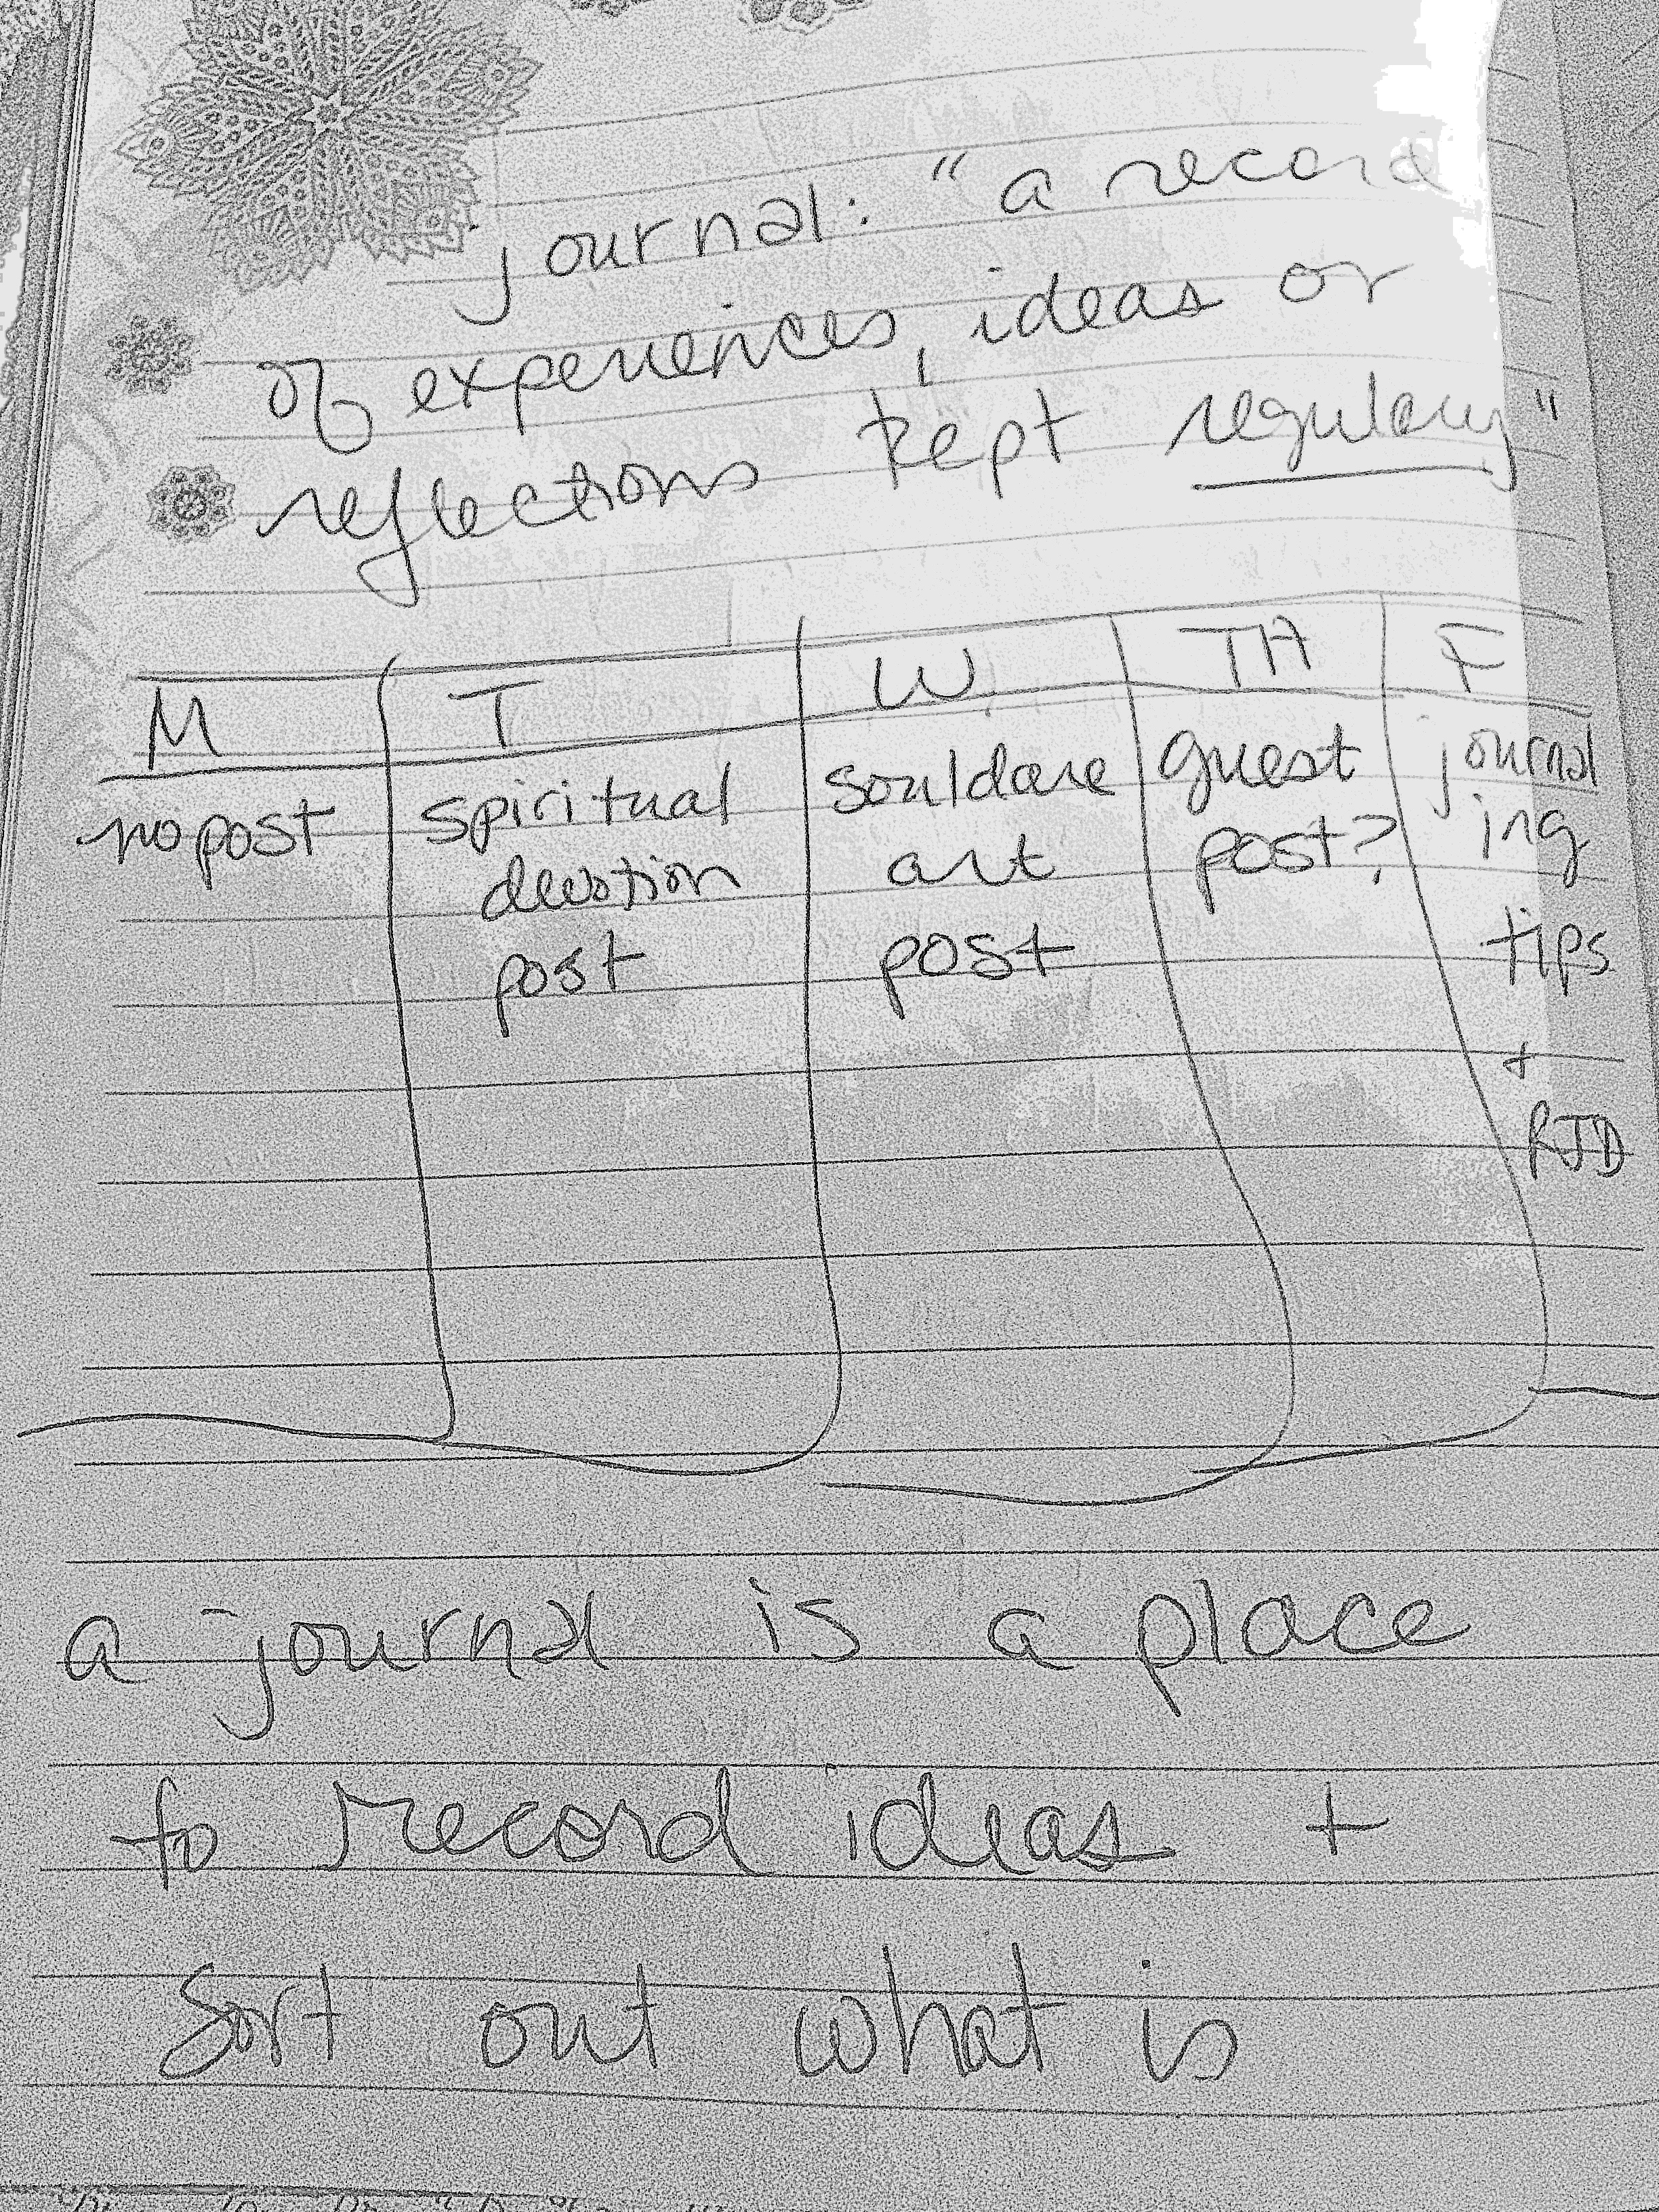 journal: "a record
of experiences, ideas or
reflections kept regulary"
M T W TH F
no post
spiritual
devotion
post
Souldare
art
post
guest
post?
journal
ing
tips
+
RJD
a journal is a place
to record ideas +
Sort out what is